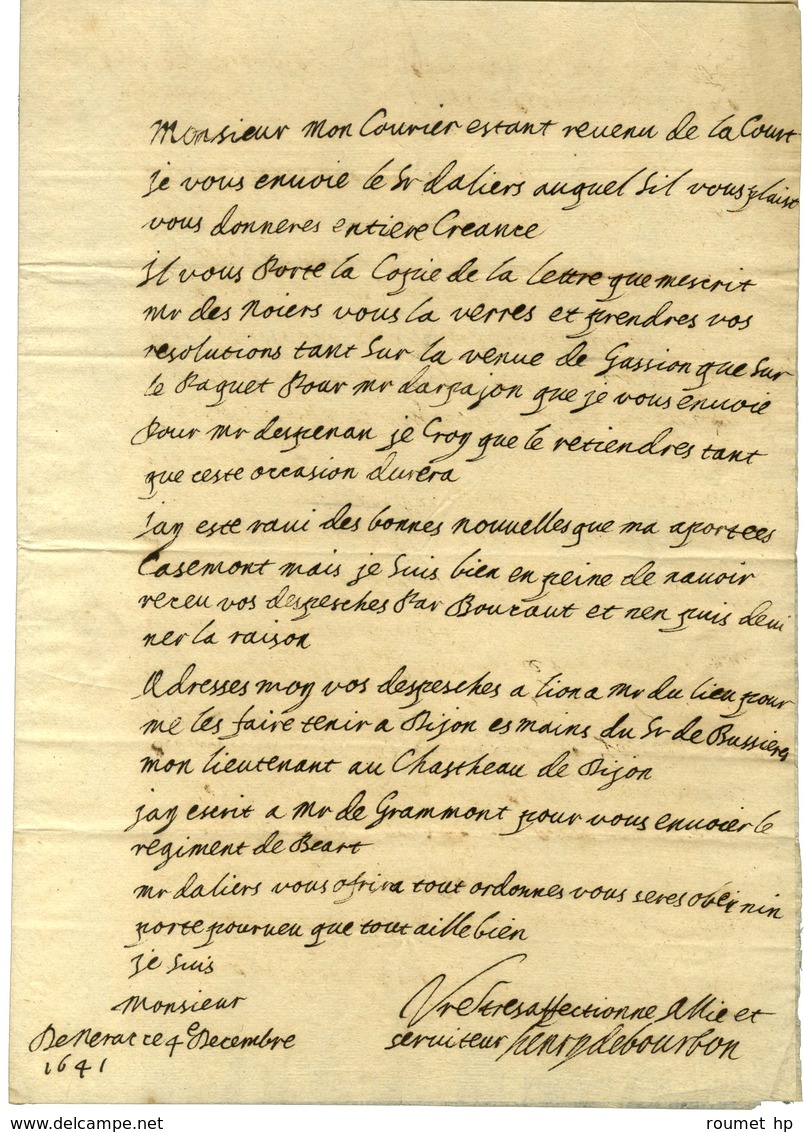 Monsieur mon Courier estant revenu de la Court
je vous envoie le Sr daliers auquel sil vous plaist
vous donneres entiere Creance
il vous Porte la Copie de la lettre que mescrit
mr des noiers vous la verres et prendres vos
resolutions tant sur la venue de Gassion que sur
le Paquet Pour mr darpajon que je vous envoie
Pour mr despenan je Croy que le retiendres tant
que ceste occasion durera
jay este ravi des bonnes nouvelles que ma aportees
Casemont mais je suis bien en peine de navoir
receu vos despesches Par Boucaut et nen puis devi
ner la raison
Adresses moy vos despesches a lion a mr du lieu pour
me les faire tenir a Dijon es mains du Sr de Bussieres
mon lieutenant au Chastheau de Dijon
jay escrit a mr de Grammont pour vous envoier le
regiment de Beart
mr daliers vous ofrira tout ordonnes vous seres obei nin
porte pourveu que tout aille bien
je suis
Monsieur
Vre tresaffectionne Allie et
De Nerac ce 4e Decembre serviteur henry de bourbon
1641
roumet hp
www.delcampe.net